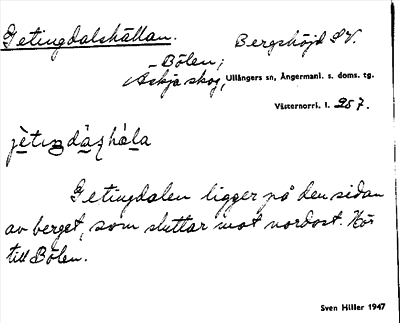 Getingdalshällan. Bergshöjd S.V.
– Bölen,
Askja skog, Ullångers sn, Ångermanl. s. doms. tg.
Västernorrl. l. 257.
jètiŋdàʂhála
Getingdalen ligger på den sidan
av berget, som sluttar mot nordost. Hör
till Bölen.
Sven Hiller 1947